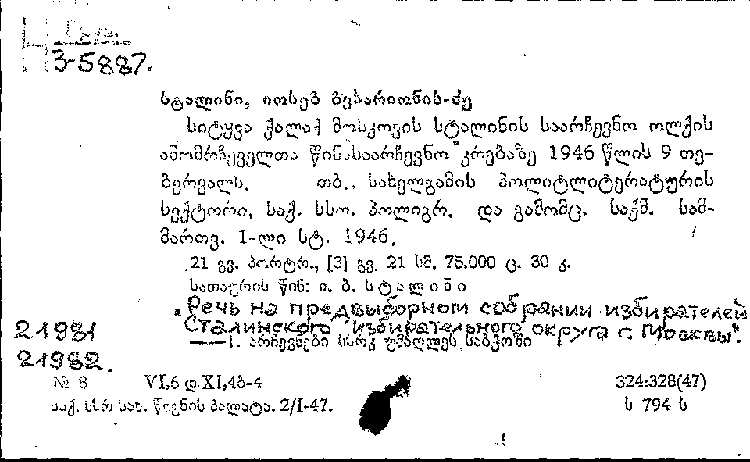 3-5887.
სტალინი, იოსებ ბესარიონის-ძე
სიტყვა ქალაქ მოსკოვის სტალინის საარჩევნო ოლქის
ამომრჩეველთა წინასაარჩევნო კრებაზე 1946 წლის 9 თე-
ბერვალს. თბ., სახელგამის პოლიტლიტერატურის
სექტორი, საქ. სსრ. პოლიგრ. და გამომც. საქმ. სამ-
მართვ. I-ლი სტ. 1946.
21 გვ. პორტრ., [3] გვ. 21 სმ. 75.000 ც. 30 კ.
სათაურის წინ: ი. ბ. სტალინი
„Речь на предвыборном собрании избирателей
21981 Сталинского избирательного округа г. Москвы".
— 1. არჩევნები სსრკ უმაღლეს საბჭოში
21982.
№ 8 VI,6 დ XI,4ბ-4 324:328(47)
საქ. სსრ სახ. წიგნის პალატა. 2/I-47. ს 794 ს